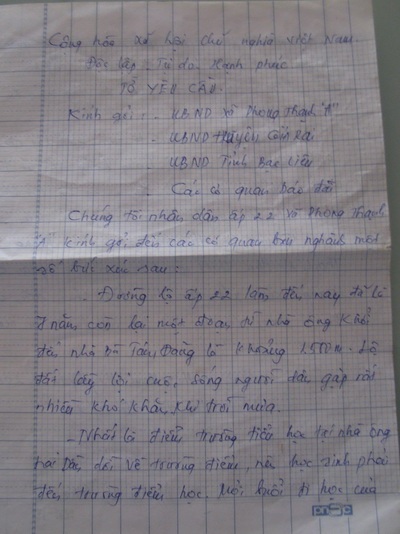 Cộng hòa xã hội chủ nghĩa Việt Nam
Độc lập - Tự do - Hạnh phúc
TỜ YÊU CẦU
Kính gởi: - UBND xã Phong Thạnh "A"
- UBND Huyện Giá Rai
UBND Tỉnh Bạc Liêu
- Các cơ quan báo đài
Chúng tôi nhân dân ấp 22 xã Phong Thạnh
"A" kính gởi đến các cơ quan ban nghành một
số bức xúc sau:
Đường lộ ấp 22 làm đến nay đã là
7 năm còn lại một đoạn từ nhà ông Khởi
đến nhà Bà Tám Đang là khoảng 1.500m. Lộ
đất lầy lội cuộc sống người dân gặp rất
nhiều khó khăn khi trời mưa.
- Nhất là điểm trường tiểu học tại nhà ông
hai dời về trường điểm, nên học sinh phải
đến trường điểm học. Mỗi buổi đi học của